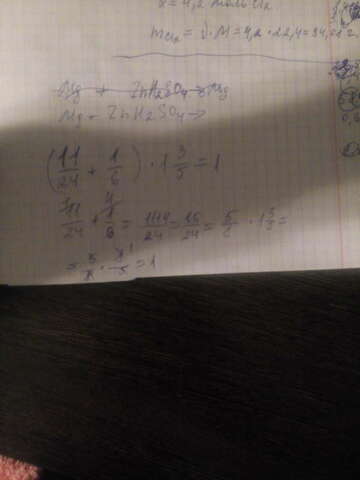 m = ν·M = 4,2 · 22,4 = 94,
Mg + ZnH2SO4 → Mg
Mg + ZnH2SO4 →
(11/24 + 1/6) · 1 3/5 = 1
11/24 + 1/6 = 11+4/24 = 15/24 = 5/8 · 1 3/5 =
= 5/8 · 8/5 = 1